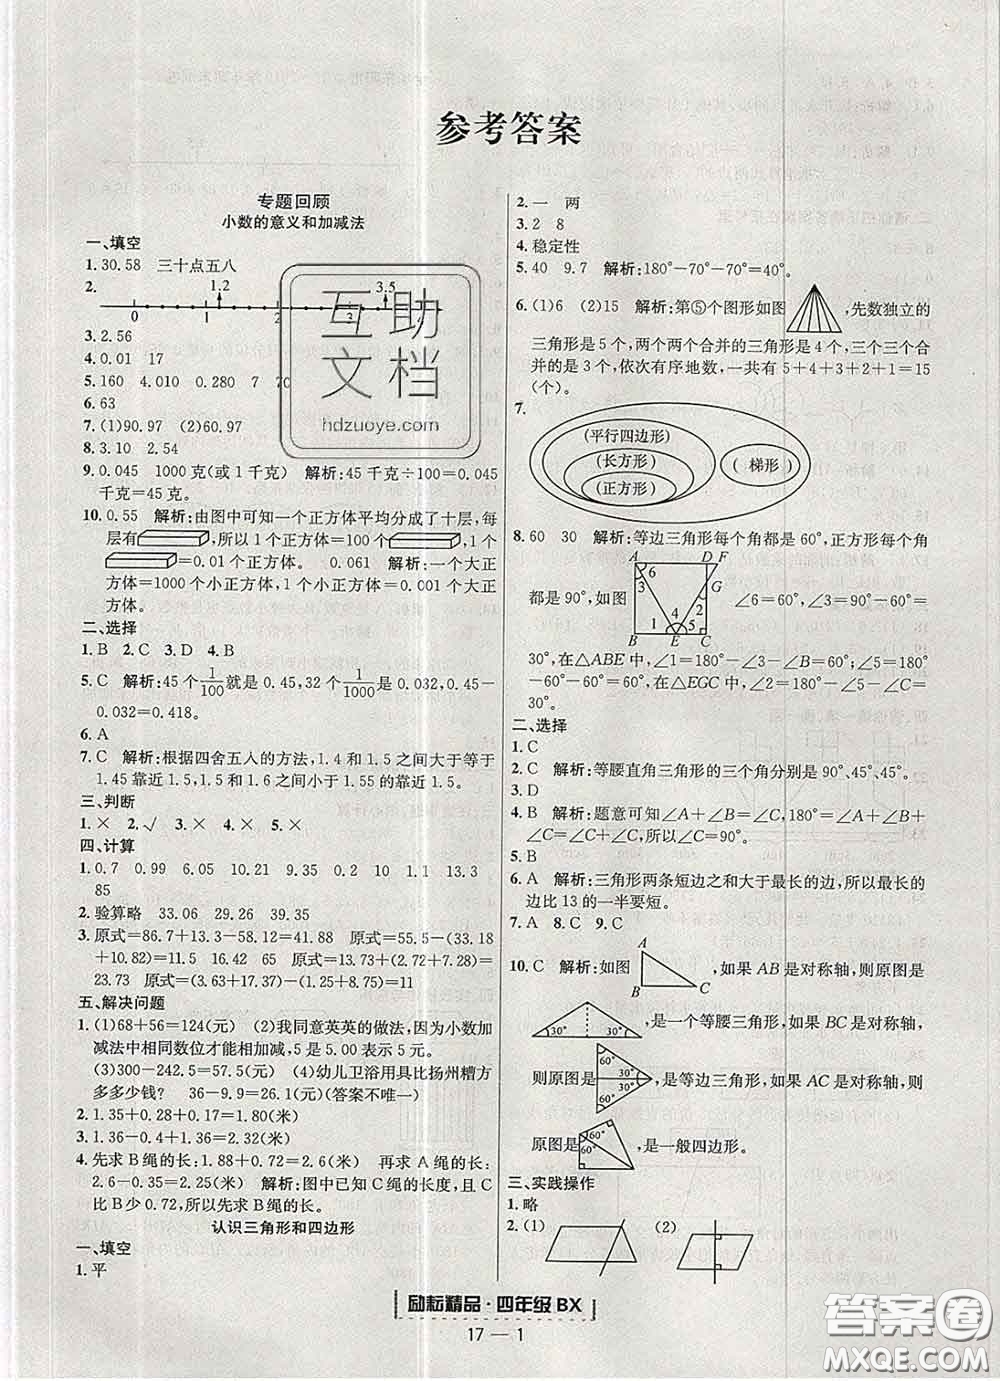 参考答案
专题回顾
小数的意义和加减法
一、填空
1.30.58　三十点五八
2.
1.2　3.5
0　1　2
3.2.56
4.0.01　17
5.160　4.010　0.280　7　70
6.63
7.(1)90.97　(2)60.97
8.3.10　2.54
9.0.045　1000克(或1千克)　解析:45千克÷100=0.045
千克=45克。
10.0.55　解析:由图中可知一个正方体平均分成了十层,每
层有,所以1个正方体=100个,1个
=0.01个正方体。　0.061　解析:一个大正
方体=1000个小正方体,1个小正方体=0.001个大正
方体。
二、选择
1.B　2.C　3.D　4.B
5.C　解析:45个1/100就是0.45,32个1/1000是0.032,0.45-
0.032=0.418。
6.A
7.C　解析:根据四舍五人的方法,1.4和1.5之间大于等于
1.45靠近1.5,1.5和1.6之间小于1.55的靠近1.5。
三、判断
1.×　2.√　3.×　4.×　5.×
四、计算
1.0.7　0.99　6.05　10.21　9.35　10　0.2　1.1　13.3
85
2.验算略　33.06　29.26　39.35
3.原式=86.7+13.3-58.12=41.88　原式=55.5-(33.18
+10.82)=11.5　16.42　65　原式=13.73+(2.74+7.26)=
23.73　原式=(3.63+17.37)-(1.25+8.75)=11
五、解决问题
1.(1)68+56=124(元)　(2)我同意英英的做法,因为小数加
减法中相同数位才能相加减,5是5.00表示5元。
(3)300-242.5=57.5(元)　(4)幼儿卫浴用具比扬州糟方
多多少钱?　36-9.9=26.1(元)(答案不唯一)
2.1.35+0.28+0.17=1.80(米)
3.1.35+0.36+0.61=2.32(米)
4.先求B绳的长:1.88+0.72=2.6(米)　再求A绳的长:
2.6-0.35=2.25(米)　解析:图中已知C绳的长度,且C
比B少0.72,所以先求B绳的长。
认识三角形和四边形
一、填空
1.平
2.一　两
3.2　8
4.稳定性
5.40　9.7　解析:180°-70°-70°=40°。
6.(1)6　(2)15　解析:第⑤个图形如图,先数独立的
三角形是5个,两个两个合并的三角形是4个,三个三个合
并的是3个,依次有序地数,一共有5+4+3+2+1=15
(个)。
7.
(平行四边形)
(长方形)
(正方形)
(梯形)
8.60　30　解析:等边三角形每个角都是60°,正方形每个角
A　D　F
6
3　G
4　2
1　5
B　E　C
都是90°,如图　∠6=60°,∠3=90°-60°=
30°,在△ABE中,∠1=180°-∠3-∠B=60°,∠5=180°
-60°-60°=60°,在△EGC中,∠2=180°-∠5-∠C=
30°。
二、选择
1.C
2.C　解析:等腰直角三角形的三个角分别是90°、45°、45°。
3.D
4.B　解析:题意可知∠A+∠B=∠C,∠A+∠B+
∠C=∠C+∠C,所以∠C=90°。
5.B
6.A　解析:三角形两条短边之和大于最长的边,所以最长的
边比13的一半要短。
7.A　8.C　9.C
10.C　解析:如图,如果AB是对称轴,则原图是
A
B　C
30°　30°
,是一个等腰三角形,如果BC是对称轴,
则原图是,是等边三角形,如果AC是对称轴,则
60°
30°
30°
60°
原图是,是一般四边形。
60°
60°
三、实践操作
1.略
2.(1)　(2)
励耘精品·四年级BX
17—1
互助
文档
hdzuoye.com
答案圈
MXQE.COM